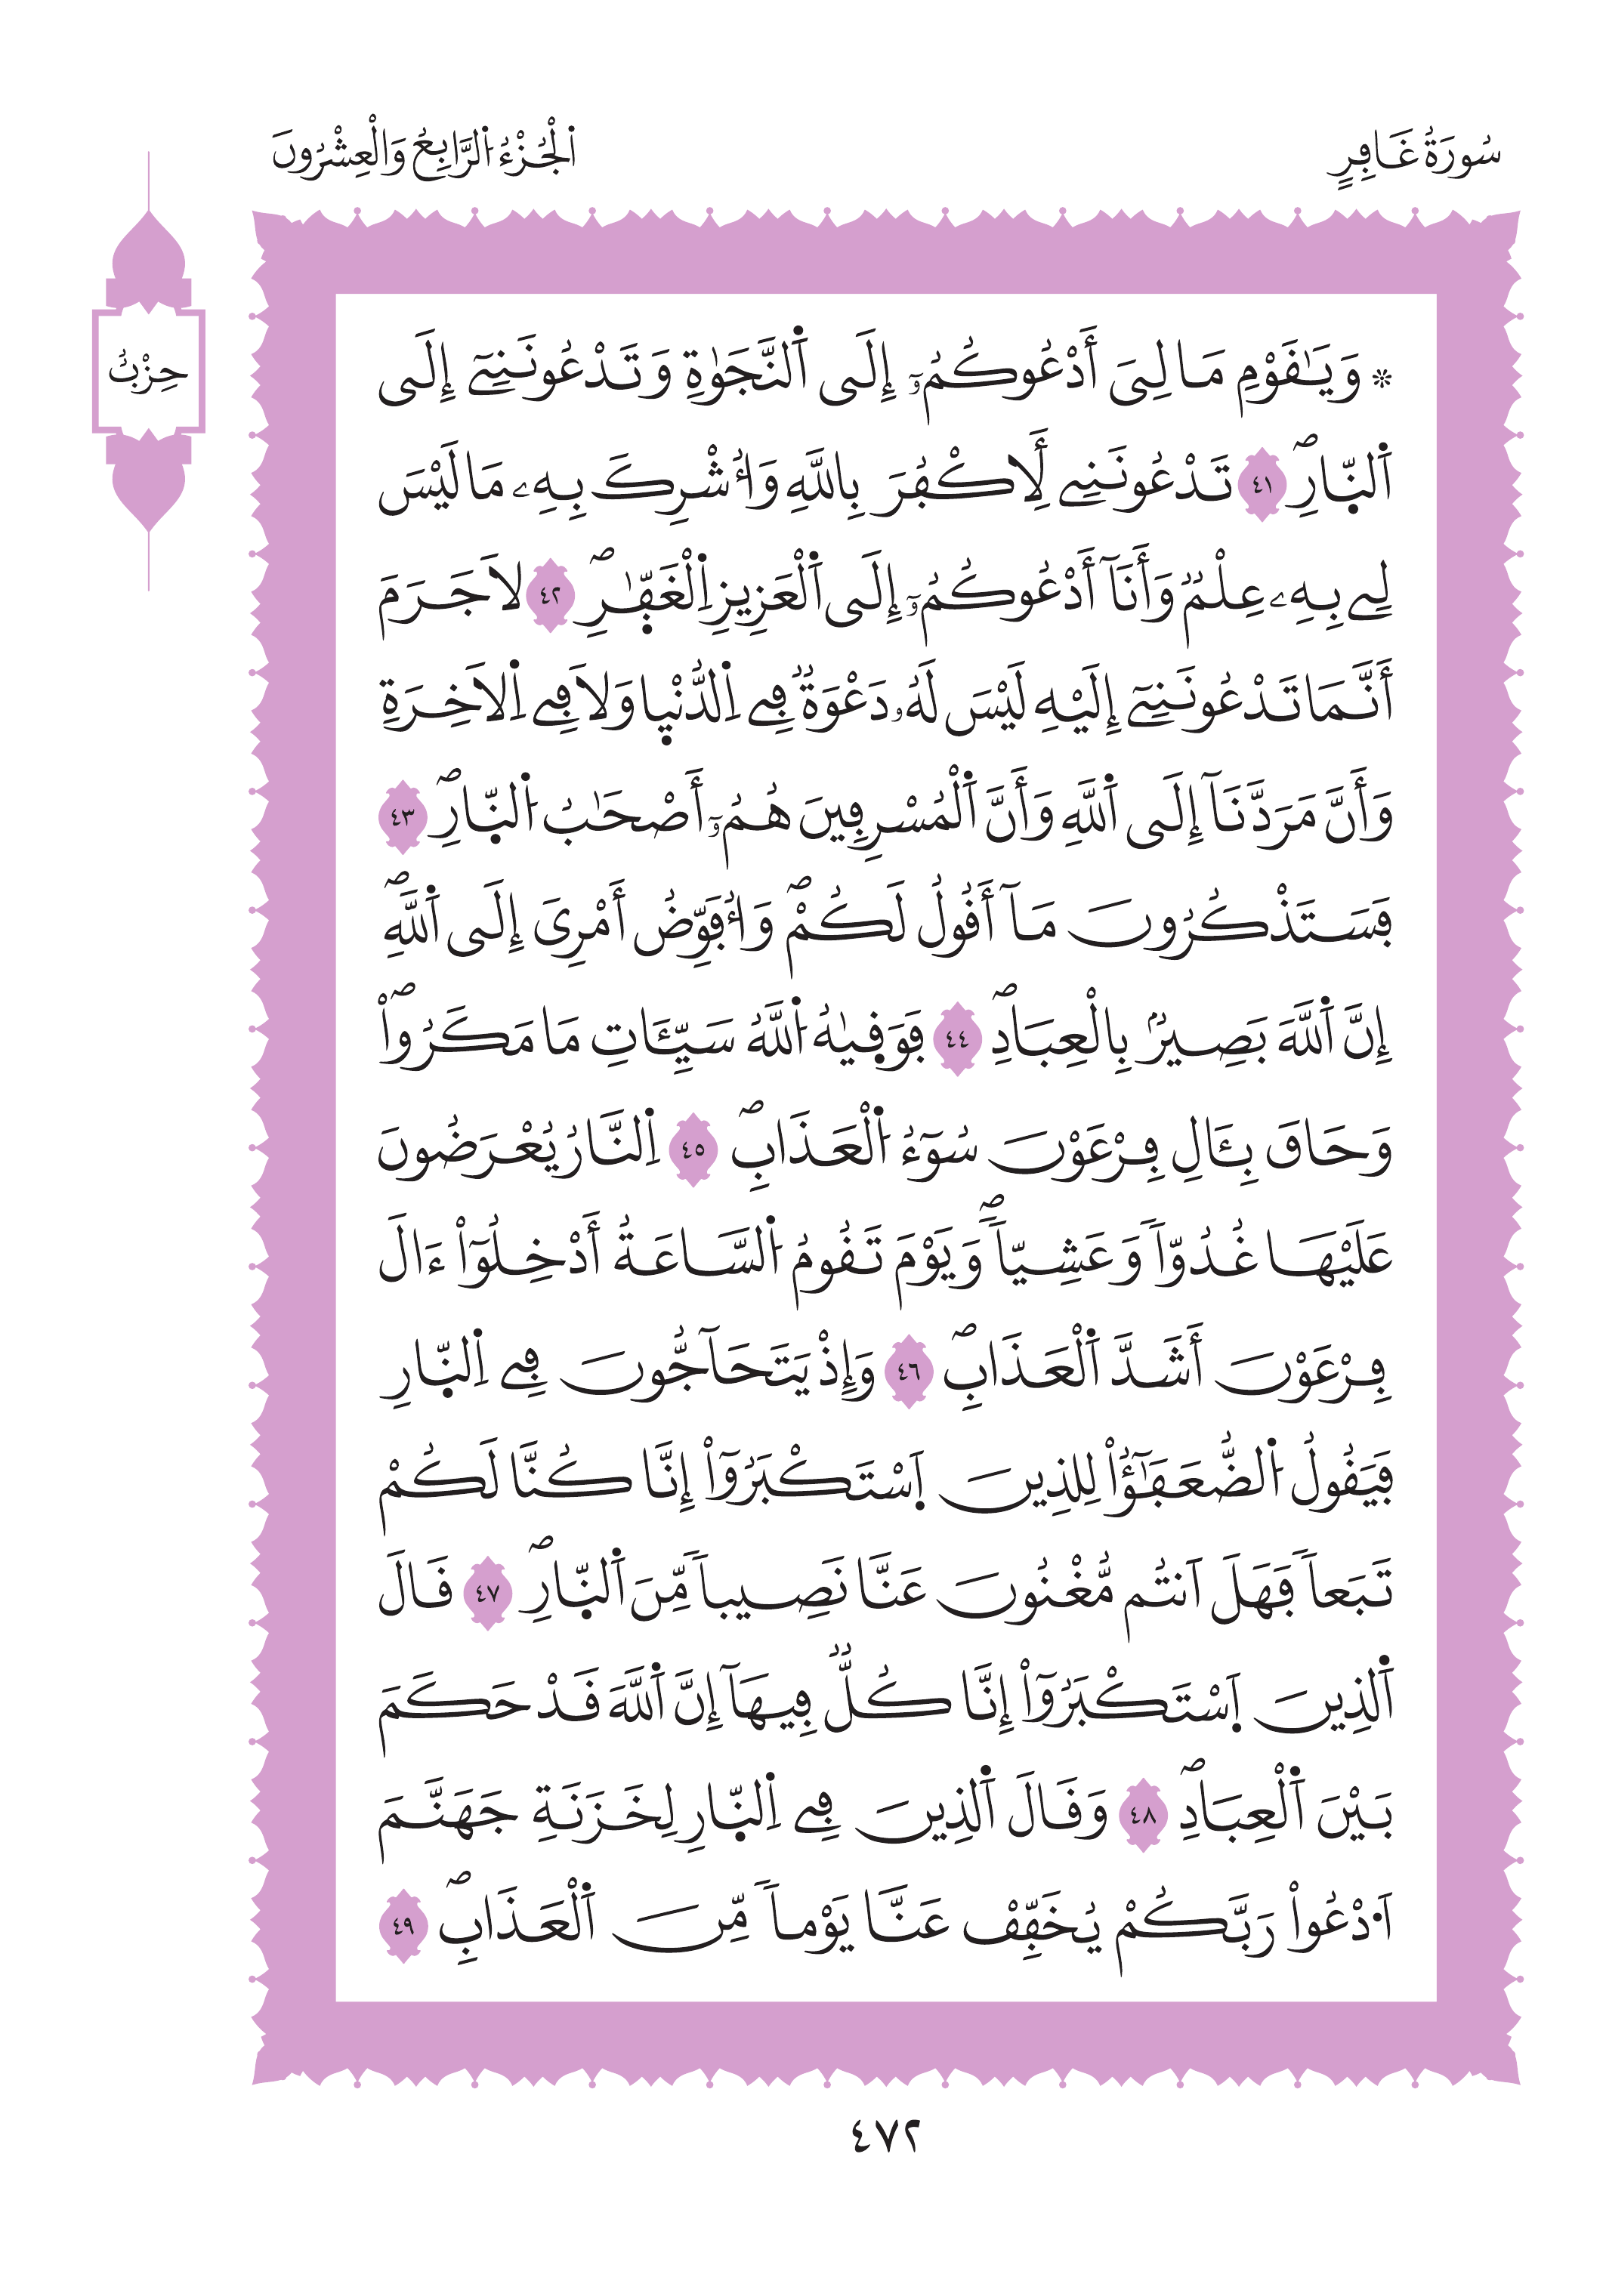 سُورَةُ غَافِرٍ
اَ۬لْجُزْءُ اُ۬لرَّابِعُ وَالْعِشْرُونَ
حِزْبٌ
۞ وَيَٰقَوْمِ مَا لِيَ أَدْعُوكُمُۥٓ إِلَى اَ۬لنَّجَوٰةِ وَتَدْعُونَنِےٓ إِلَى
اَ۬لنّ۪ارِۖ ٤١ تَدْعُونَنِے لِأَكْفُرَ بِاللَّهِ وَأُشْرِكَ بِهِۦ مَا لَيْسَ
لِے بِهِۦ عِلْمٞ وَأَنَآ أَدْعُوكُمُۥٓ إِلَى اَ۬لْعَزِيزِ اِ۬لْغَفّٰ۪رِۖ ٤٢ لَا جَرَمَ
أَنَّمَا تَدْعُونَنِےٓ إِلَيْهِ لَيْسَ لَهُۥ دَعْوَةٞ فِے اِ۬لدُّنْي۪ا وَلَا فِے اِ۬لَاخِرَةِ
وَأَنَّ مَرَدَّنَآ إِلَى اَ۬للَّهِ وَأَنَّ اَ۬لْمُسْرِفِينَ هُمُۥٓ أَصْحَٰبُ اُ۬لنّ۪ارِۖ ٤٣
فَسَتَذْكُرُونَ مَآ أَقُولُ لَكُمْۖ وَأُفَوِّضُ أَمْرِيَ إِلَى اَ۬للَّهِۖ
إِنَّ اَ۬للَّهَ بَصِيرُۢ بِالْعِبَادِۖ ٤٤ فَوَق۪يٰهُ اُ۬للَّهُ سَيِّـَٔاتِ مَا مَكَرُواْۖ
وَحَاقَ بِـَٔالِ فِرْعَوْنَ سُوٓءُ اُ۬لْعَذَابِۖ ٤٥ اِ۬لنَّارُ يُعْرَضُونَ
عَلَيْهَا غُدُوّاٗ وَعَشِيّاٗۖ وَيَوْمَ تَقُومُ اُ۬لسَّاعَةُ أَدْخِلُوٓاْ ءَالَ
فِرْعَوْنَ أَشَدَّ اَ۬لْعَذَابِۖ ٤٦ وَإِذْ يَتَحَآجُّونَ فِے اِ۬لنّ۪ارِ
فَيَقُولُ اُ۬لضُّعَفَٰٓؤُاْ لِلذِينَ اَ۪سْتَكْبَرُوٓاْ إِنَّا كُنَّا لَكُمْ
تَبَعاٗ فَهَلَ اَنتُم مُّغْنُونَ عَنَّا نَصِيباٗ مِّنَ اَ۬لنّ۪ارِۖ ٤٧ قَالَ
اَ۬لذِينَ اَ۪سْتَكْبَرُوٓاْ إِنَّا كُلّٞ فِيهَآ إِنَّ اَ۬للَّهَ قَدْ حَكَمَ
بَيْنَ اَ۬لْعِبَادِۖ ٤٨ وَقَالَ اَ۬لذِينَ فِے اِ۬لنّ۪ارِ لِخَزَنَةِ جَهَنَّمَ
اَ۟دْعُواْ رَبَّكُمْ يُخَفِّفْ عَنَّا يَوْماٗ مِّنَ اَ۬لْعَذَابِۖ ٤٩
٤٧٢